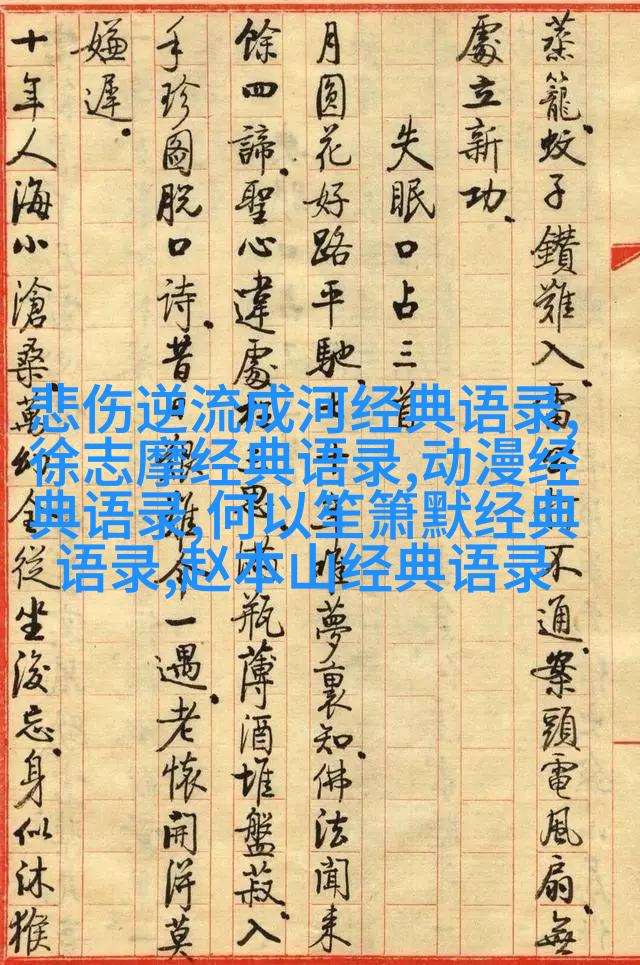 蒸籠.蚊子鑽難入.不通.案頭電風扇.無
處立新功.
失眠口占三首
月圓花好路平馳.夢裏知.佛法聞來
餘四諦.聖心違處三思.瓶薄酒堆盤菽.入
手珍圖脫口詩.昔日艱難今一遇.老懷開得莫
嫌遲.
十年人海小滄桑.萬幻全從坐後忘.身似沐猴
悲伤逆流成河经典语录,
徐志摩经典语录,动漫经
典语录,何以笙箫默经典
语录,赵本山经典语录